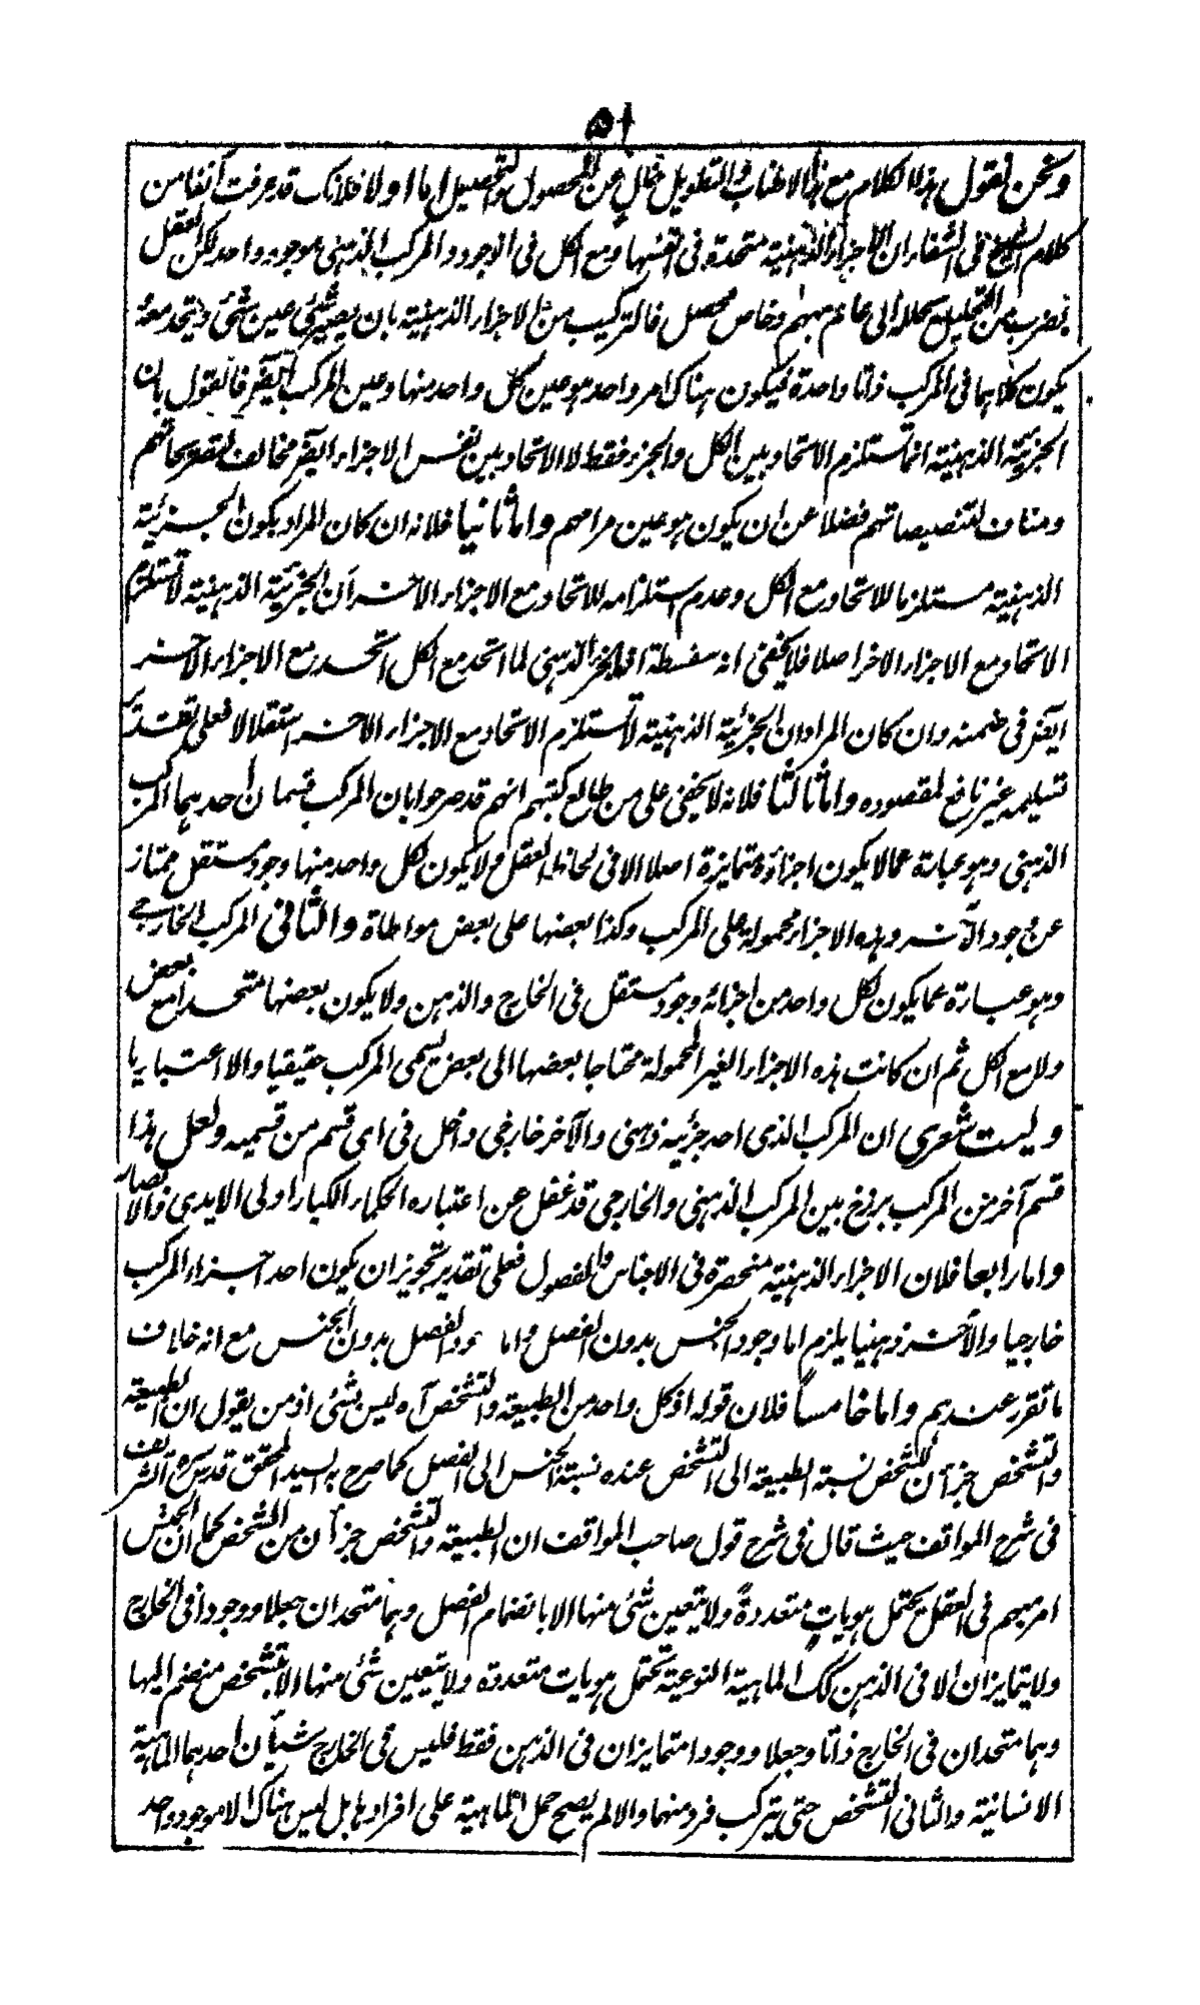 ٥١
ونحن نقول هذا الكلام مع هذا الاطناب والتطويل خالٍ عن المحصول والتحصيل اما اولا فلانك قد عرفت آنفا من
كلام الشيخ فى الشفاء ان الاجزاء الذهنية متحدة فى انفسها ومع الكل فى الوجود والمركب الذهنى موجود واحد لكن العقل
بضرب من التحليل يحلله الى عام مبهم وخاص محصل فالتركيب من الاجزاء الذهنية بان يصير شئ عين شئ ويتحد معه
يكون كلاهما فى المركب ذاتا واحدة فيكون هناك امر واحد هو عين كل واحد منها وعين المركب ايضر فالقول بان
الجزئية الذهنية انما تستلزم الاتحاد بين الكل والجزء فقط لا الاتحاد بين نفس الاجزاء ايضر مخالف لتصريحاتهم
ومناف لتنصيصاتهم فضلا عن ان يكون هو عين مرامهم واما ثانيا فلانه ان كان المراد بكون الجزئية
الذهنية مستلزما للاتحاد مع الكل وعدم استلزامه للاتحاد مع الاجزاء الاخر ان الجزئية الذهنية لا تستلزم
الاتحاد مع الاجزاء الاخر اصلا فلا يخفى انه سفسطة اذ الجزء الذهنى لما اتحد مع الكل اتحد مع الاجزاء الاخر
ايضر فى ضمنه وان كان المراد ان الجزئية الذهنية لا تستلزم الاتحاد مع الاجزاء الاخر استقلالا فعلى تقدير
تسليمه غير نافع لمقصوده واما ثالثا فلانه لا يخفى على من طالع كتبهم انهم قد صرحوا بان المركب قسمان احدهما المركب
الذهنى وهو عبارة عما لا يكون اجزاؤه متمايزة اصلا الا فى لحاظ العقل ولا يكون لكل واحد منها وجود مستقل ممتاز
عن وجود الآخر وهذه الاجزاء محمولة على المركب وكذا بعضها على بعض مواطاة والثانى المركب الخارجى
وهو عبارة عما يكون لكل واحد من اجزائه وجود مستقل فى الخارج والذهن ولا يكون بعضها متحدا مع بعض
ولا مع الكل ثم ان كانت هذه الاجزاء الغير المحمولة محتاجا بعضها الى بعض يسمى المركب حقيقيا والا اعتباريا
وليت شعرى ان المركب الذى احد جزئيه ذهنى والآخر خارجى داخل فى اى قسم من قسميه ولعل هذا
قسم آخر من المركب برزخ بين المركب الذهنى والخارجى قد غفل عن اعتباره الحكماء الكبار اولى الايدى والابصار
واما رابعا فلان الاجزاء الذهنية منحصرة فى الاجناس والفصول فعلى تقدير تجويز ان يكون احد اجزاء المركب
خارجيا والآخر ذهنيا يلزم اما وجود الجنس بدون الفصل واما وجود الفصل بدون الجنس مع انه خلاف
ما تقرر عندهم واما خامساً فلان قوله اذ كل واحد من الطبيعة والتشخص آه ليس بشئ اذ من يقول ان الطبيعة
والتشخص جزآن للشخص نسبة الطبيعة الى التشخص عنده نسبة الجنس الى الفصل كما صرح به السيد المحقق قدس سره الشريف
فى شرح المواقف حيث قال فى شرح قول صاحب المواقف ان الطبيعة والتشخص جزآن من الشخص كما ان الجنس
امر مبهم فى العقل يحتمل هويات متعددةً ولا يتعين شئ منها الا بانضمام الفصل وهما متحدان جعلا ووجودا فى الخارج
ولا يتمايزان الا فى الذهن كك الماهية النوعية تحتمل هويات متعددة ولا يتعين شئ منها الا بتشخص منضم اليها
وهما متحدان فى الخارج ذاتا وجعلا ووجودا متمايزان فى الذهن فقط فليس فى الخارج شيأن احدهما الماهية
الانسانية والثانى التشخص حتى يتركب فرد منهما والا لم يصح حمل الماهية على افرادها بل ليس هناك الا موجود واحد